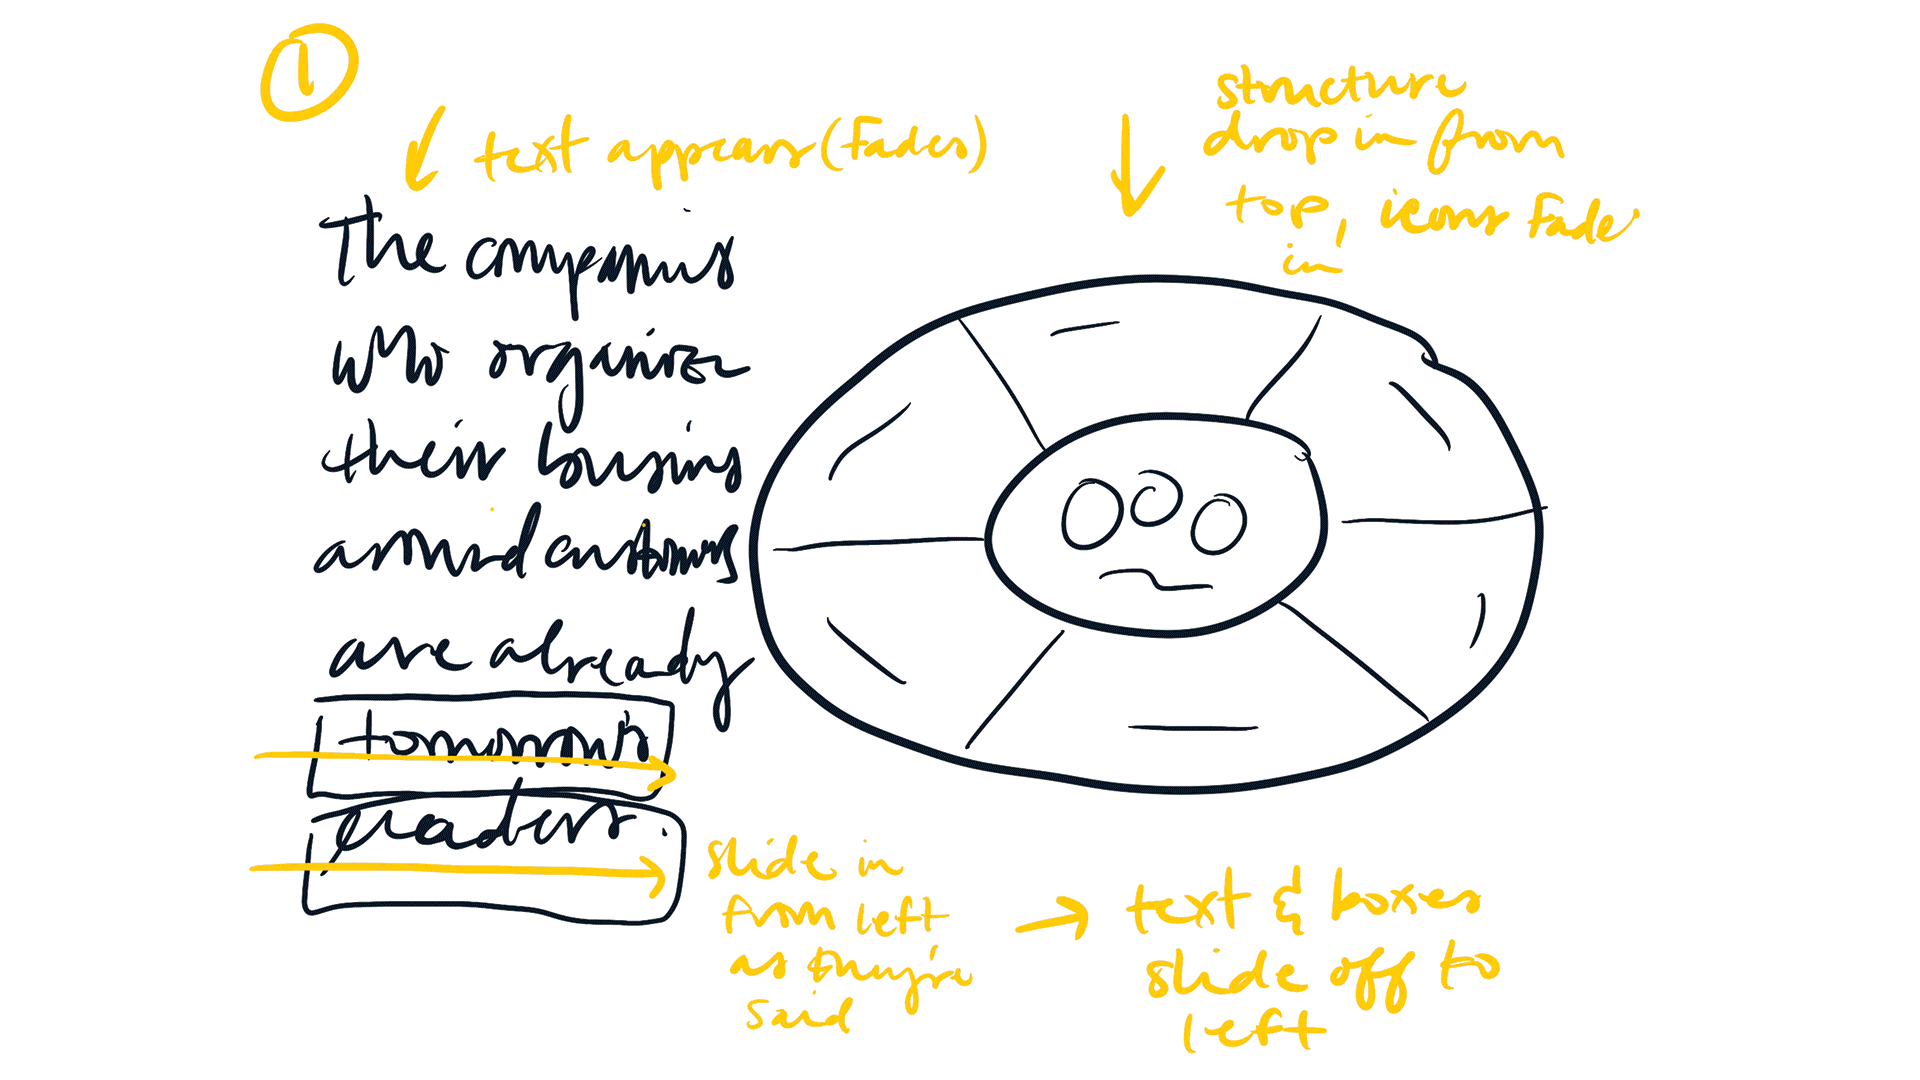 1
text appears (Fades)
structure
drop in from
top, icons Fade
in
The companies
who organize
their business
around customers
are already
tomorrow's
leaders.
slide in
from left
as they're
said
→ text & boxes
slide off to
left